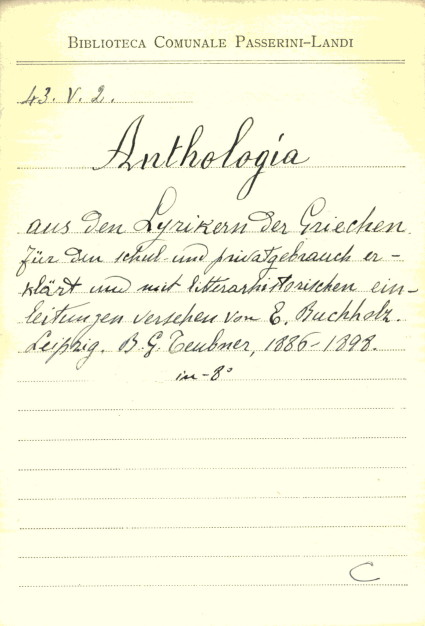 BIBLIOTECA COMUNALE PASSERINI-LANDI
43. V. 2.
Anthologia
aus den Lyrikern der Griechen.
für den schul- und privatgebrauch er-
klärt und mit litterarhistorischen ein-
leitungen versehen von E. Buchholz.
Leipzig. B. G. Teubner, 1886-1898.
in-8°
C